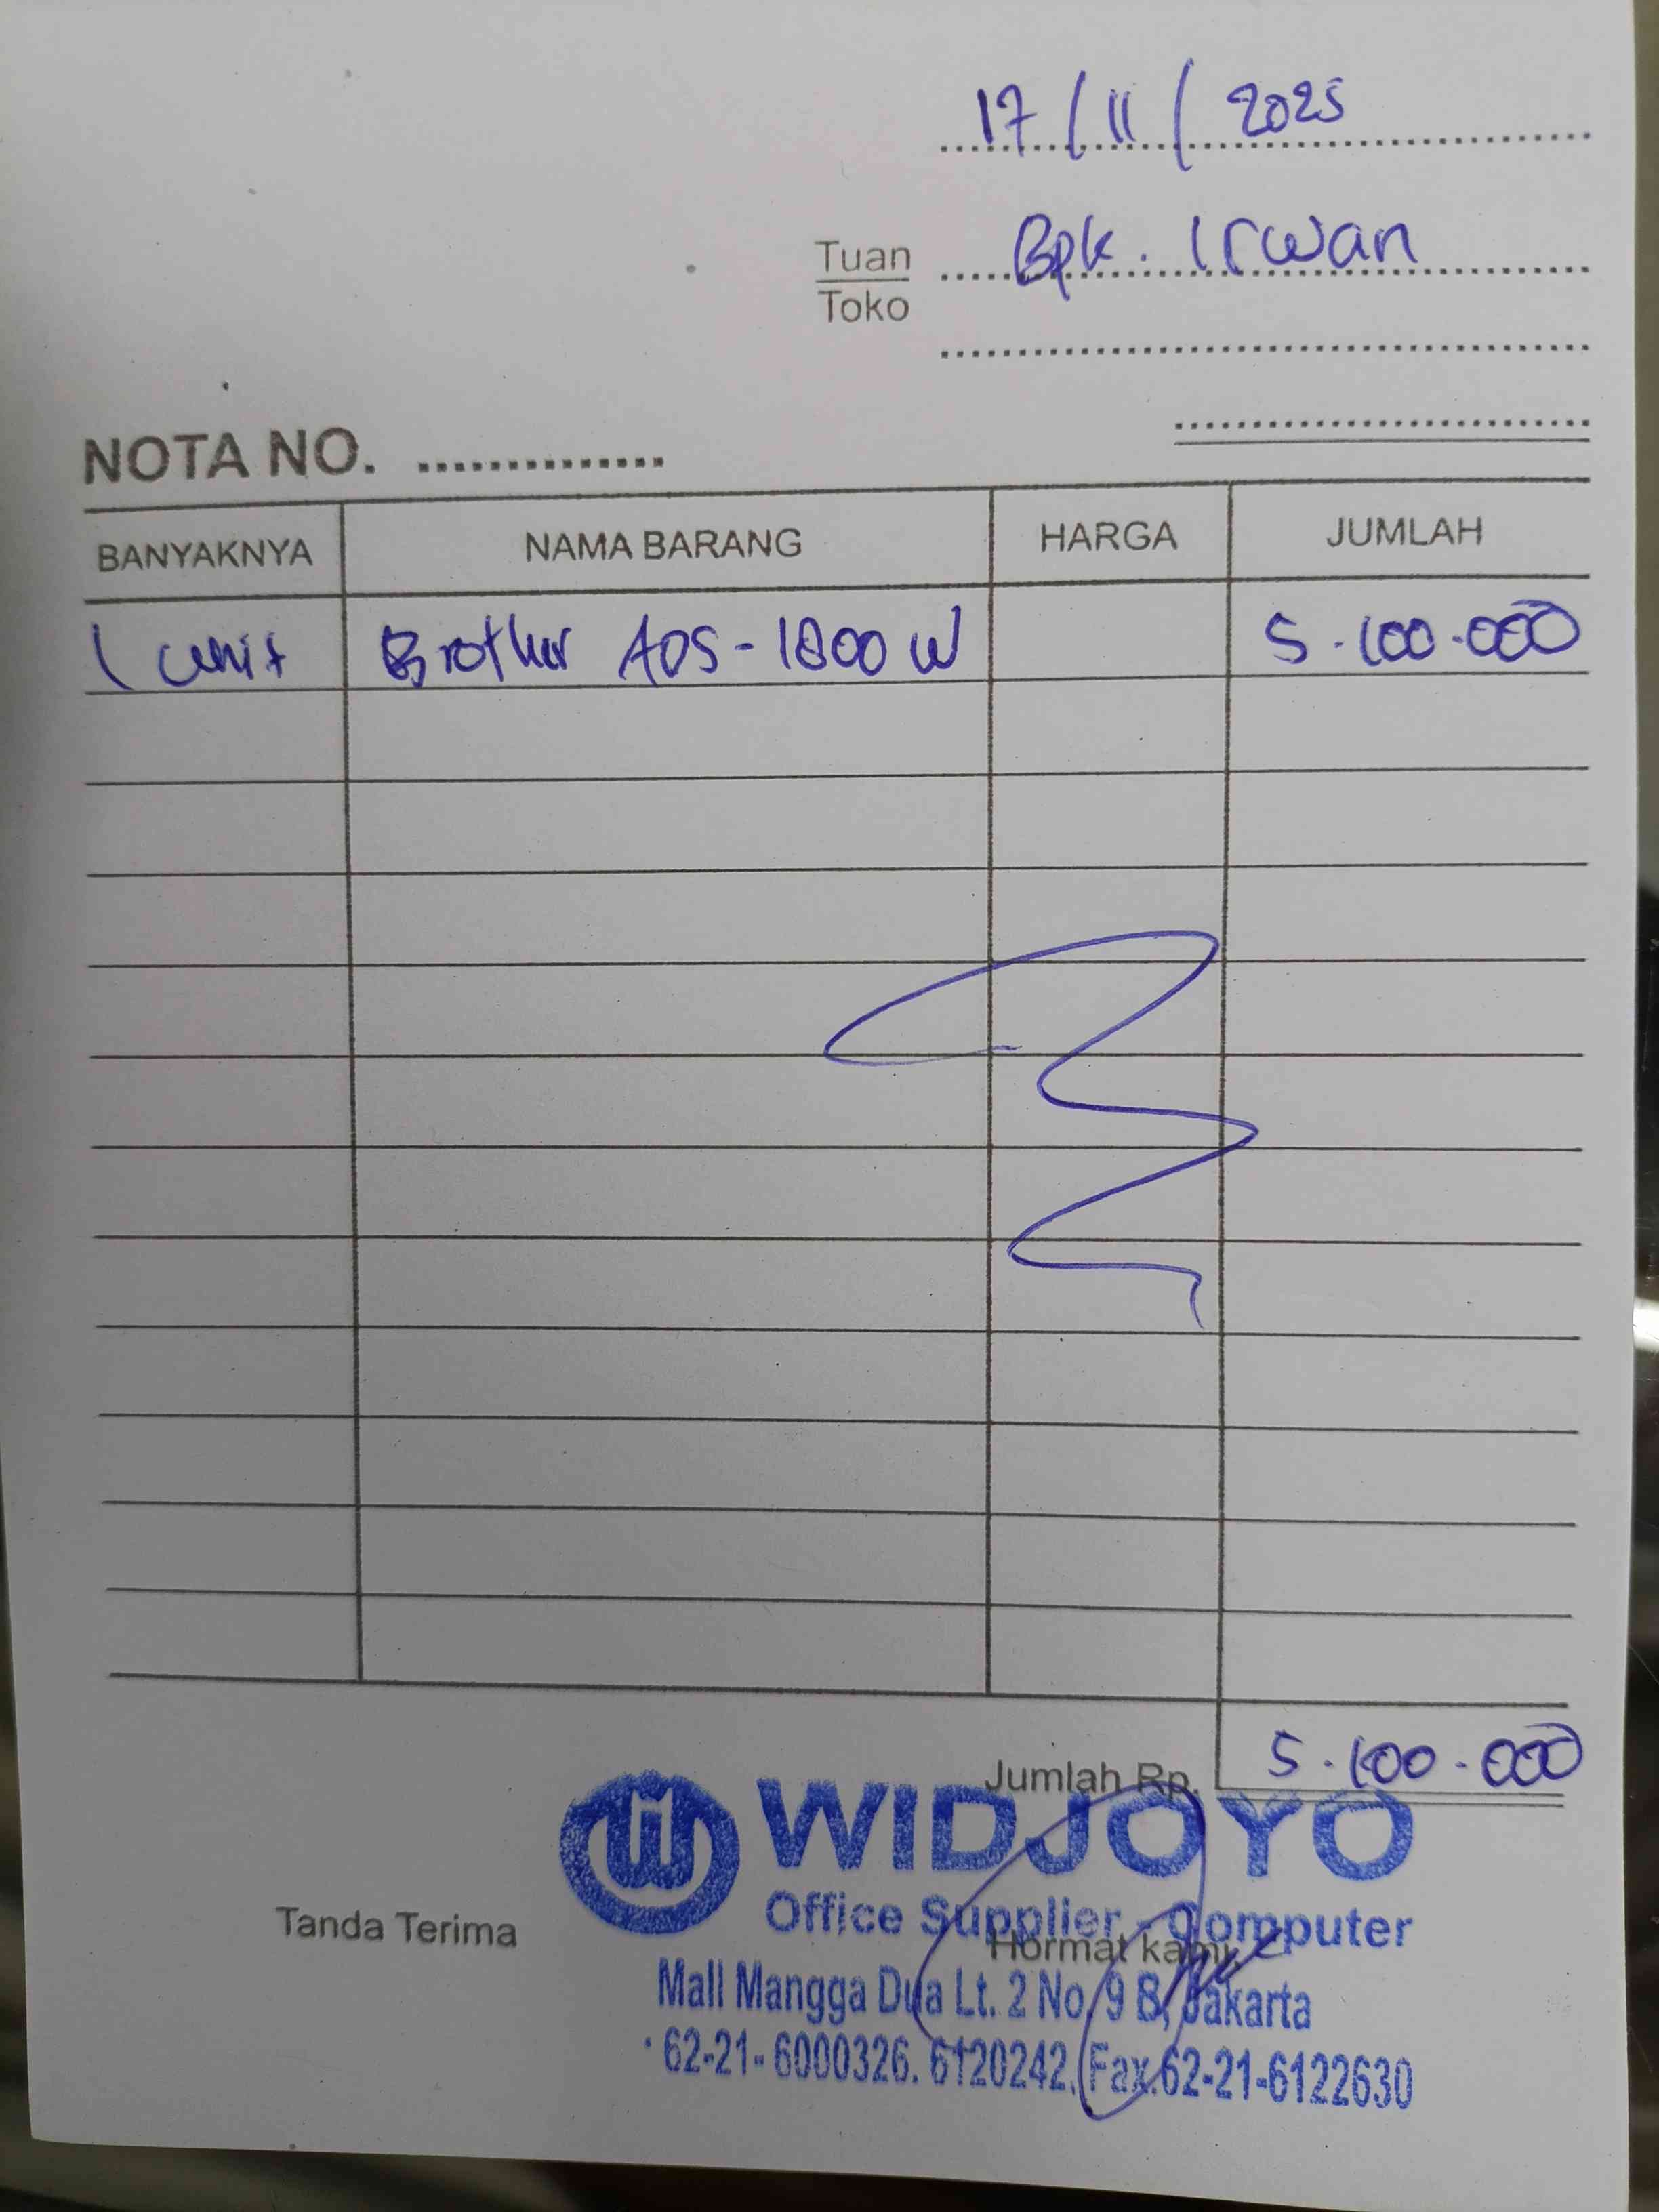 17/11/2025
Tuan Bpk. Irwan
Toko
NOTA NO. ..............
BANYAKNYA NAMA BARANG HARGA JUMLAH
1 unit Brother ADS-1800 W 5.100.000
Jumlah Rp. 5.100.000
WIDJOYO
Office Supplier - Computer
Tanda Terima Hormat kami,
Mall Mangga Dua Lt. 2 No. 9 B, Jakarta
62-21-6000326. 6120242. Fax.62-21-6122630